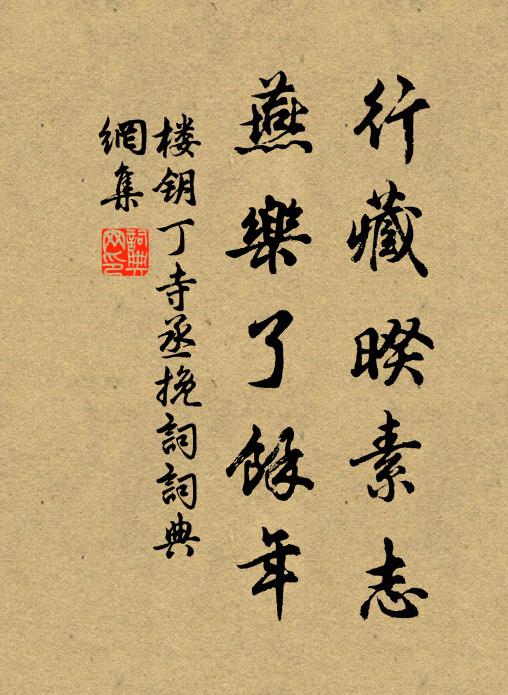 行藏暌素志
燕樂了餘年
楼钥丁寺丞挽詞詞典
網集
詞典網印